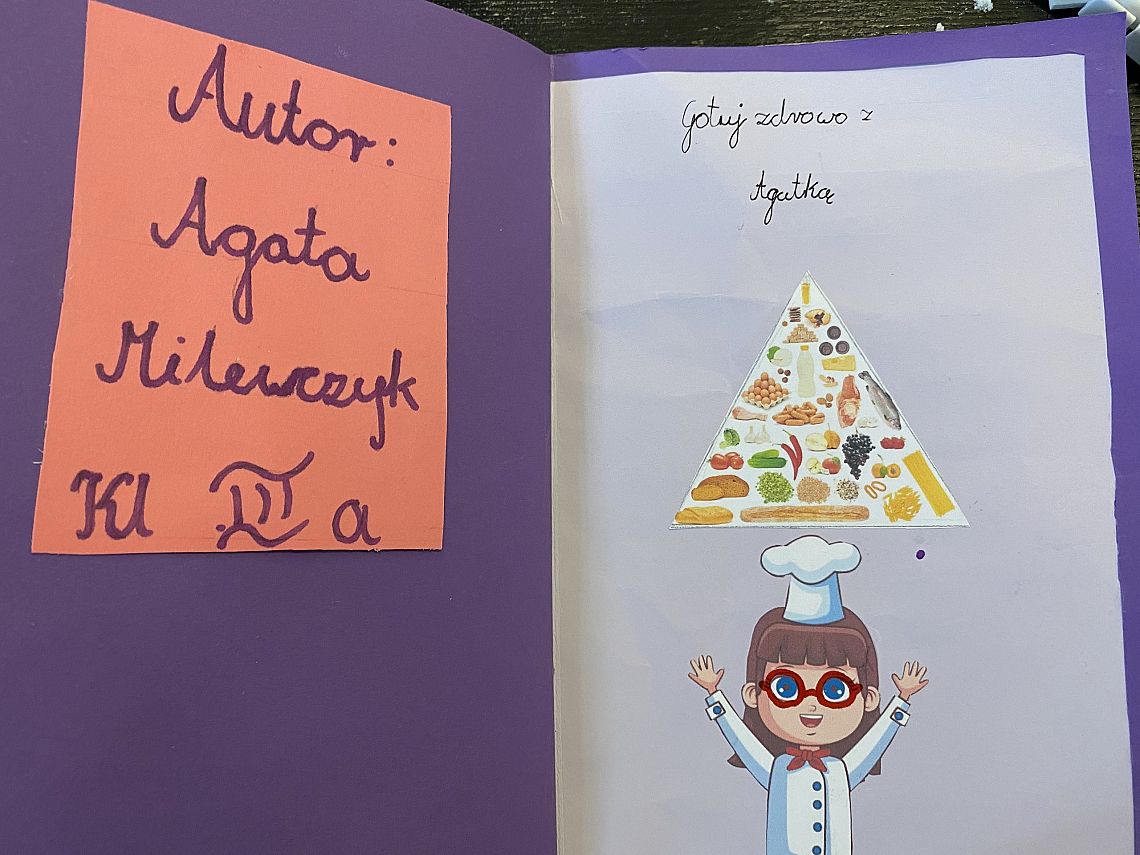 Autor:
Agata
Milewczyk
Kl III a
Gotuj zdrowo z
Agatką